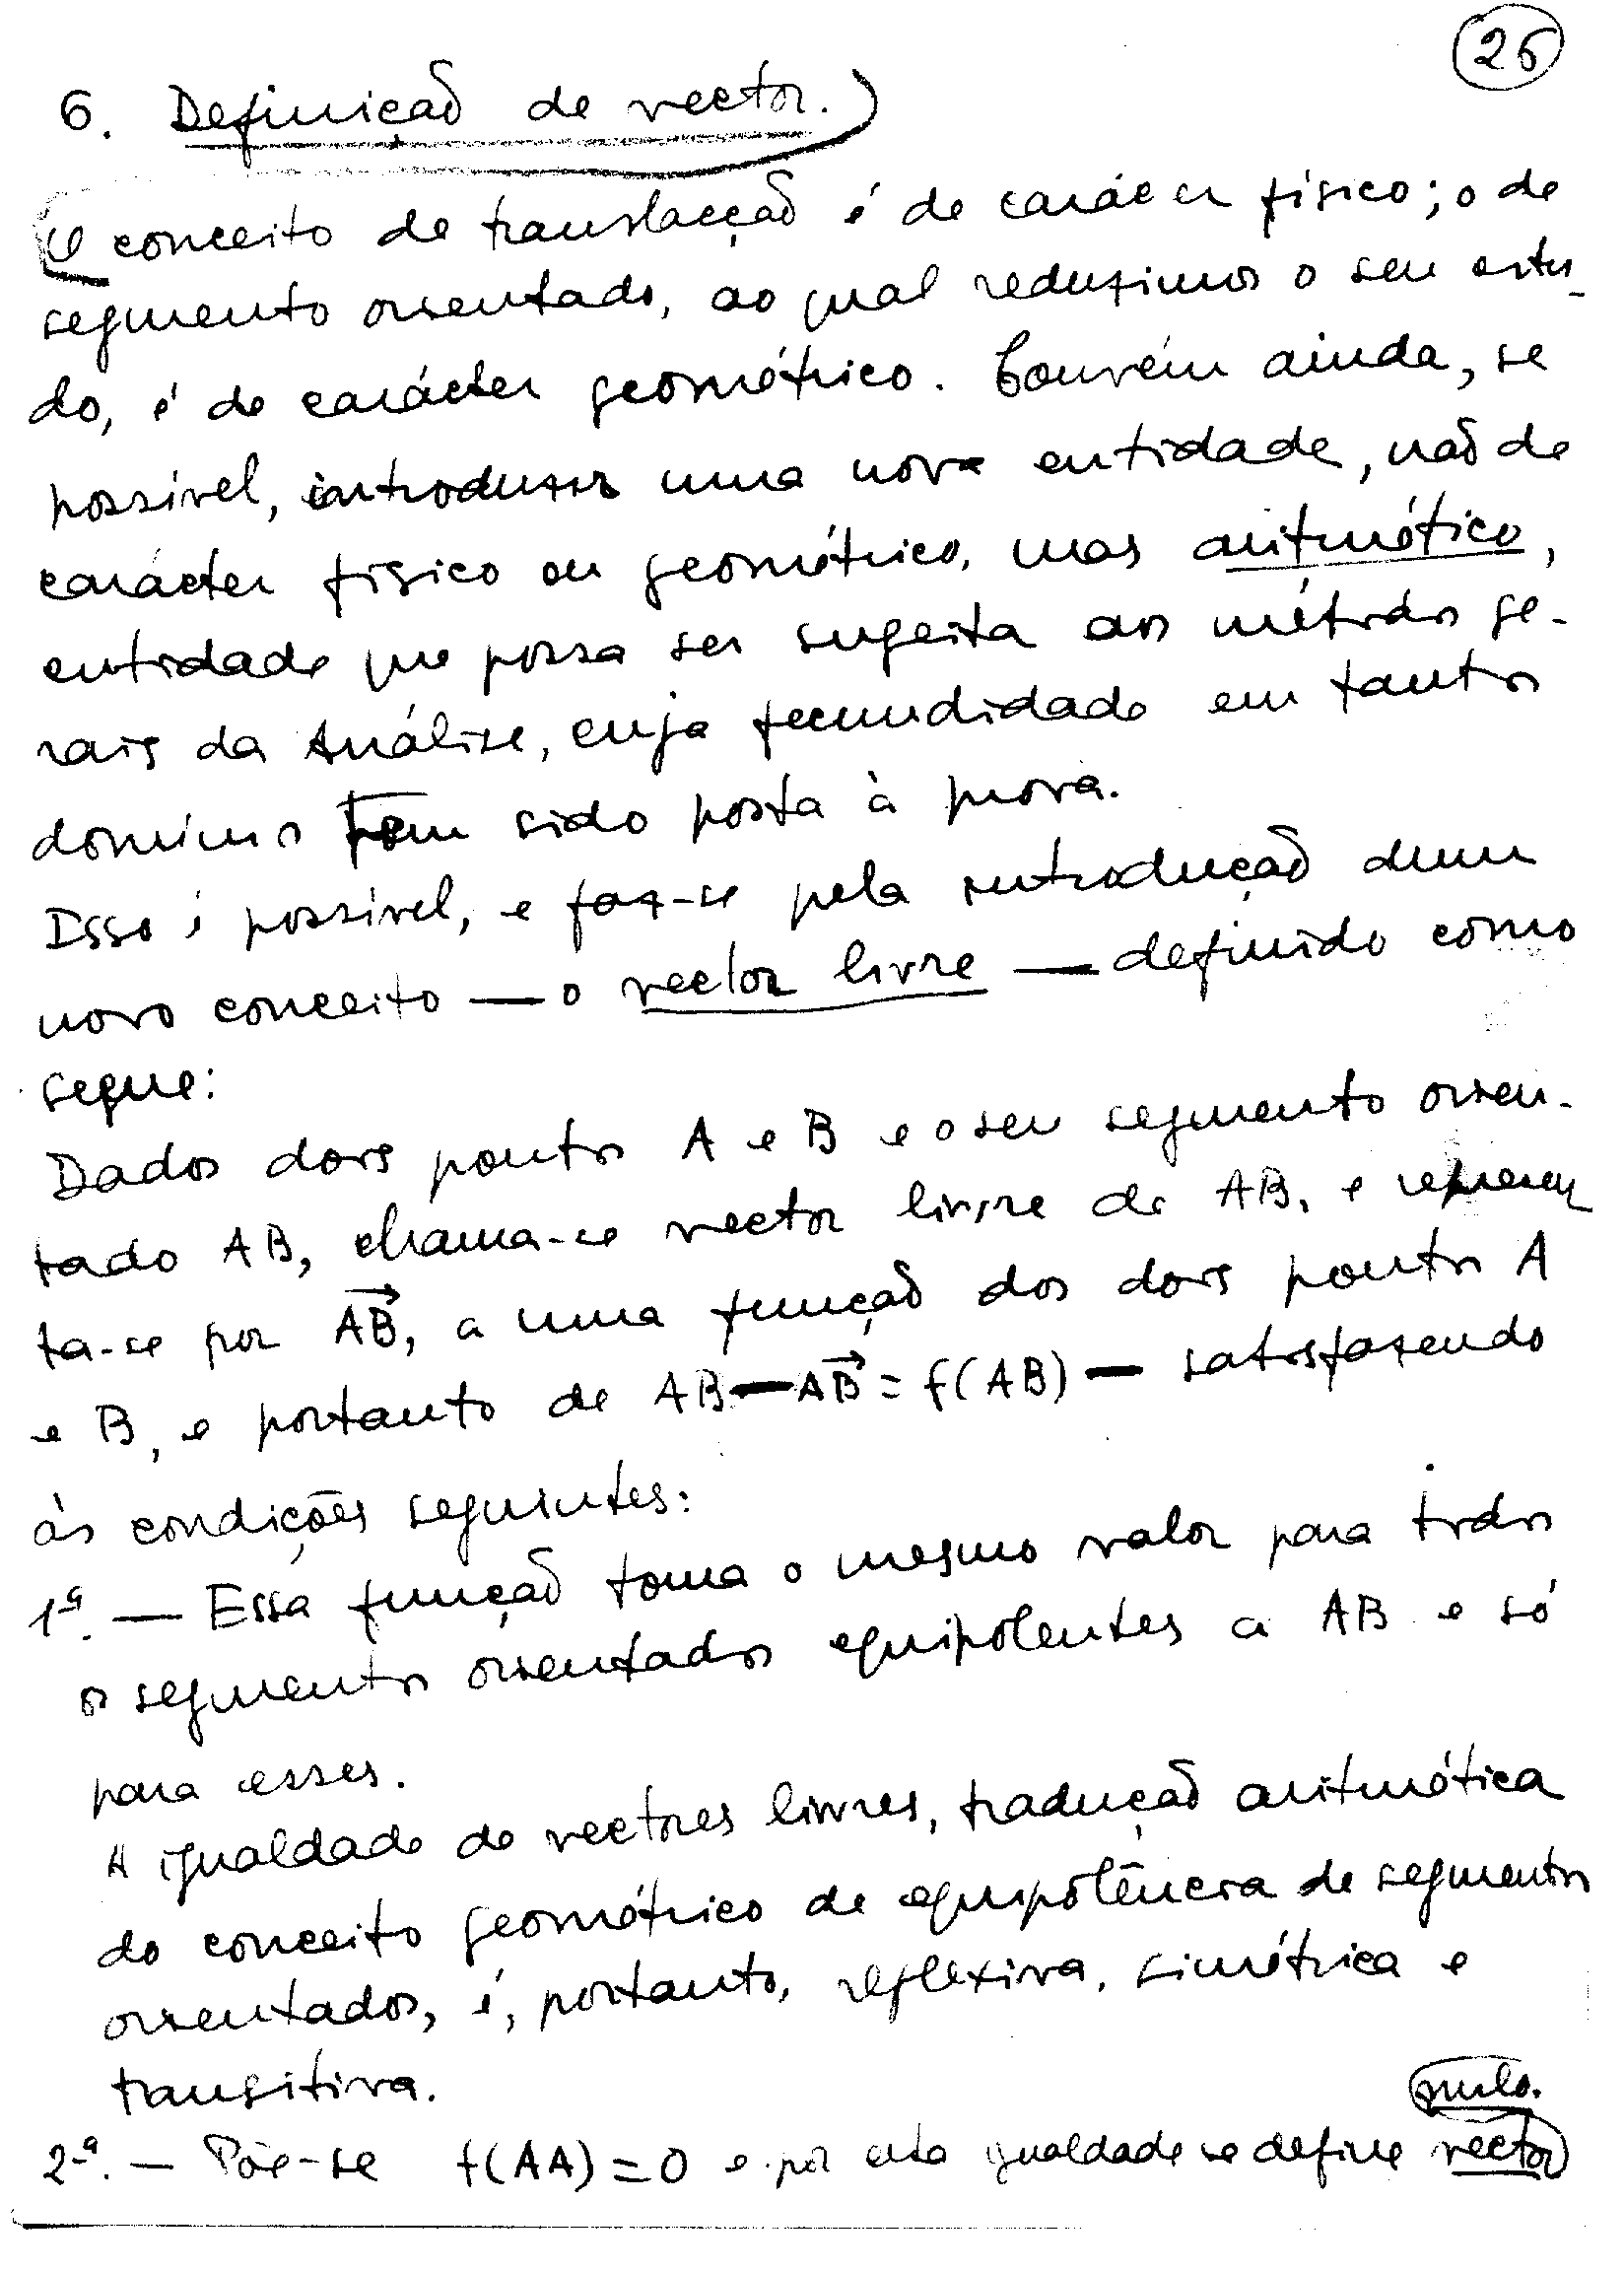 26
6. Definição de vector.
O conceito de translacção é de carácter físico; o de
segmento orientado, ao qual reduzimos o seu estu-
do, é de carácter geométrico. Convém ainda, se
possível, introduzir uma nova entidade, não de
carácter físico ou geométrico, mas aritmético,
entidade que possa ser sugeita aos métodos ge-
rais da Análise, cuja fecundidade em tantos
domínios tem sido posta à prova.
Isso é possível, e faz-se pela introdução dum
novo conceito — o vector livre — definido como
segue:
Dados dois pontos A e B e o seu segmento orien-
tado AB, chama-se vector livre de AB, e represen
ta-se por \overrightarrow{AB}, a uma função dos dois pontos A
e B, e portanto de AB — \overrightarrow{AB} = f(AB) — satisfazendo
às condições seguintes:
1ª. — Essa função toma o mesmo valor para todos
os segmentos orientados equipolentes a AB e só
para esses.
A igualdade de vectores livres, tradução aritmética
do conceito geométrico de equipolência de segmentos
orientados, é, portanto, reflexiva, simétrica e
transitiva.
2ª. — Põe-se f(AA) = 0 e por esta igualdade se define vector
nulo.